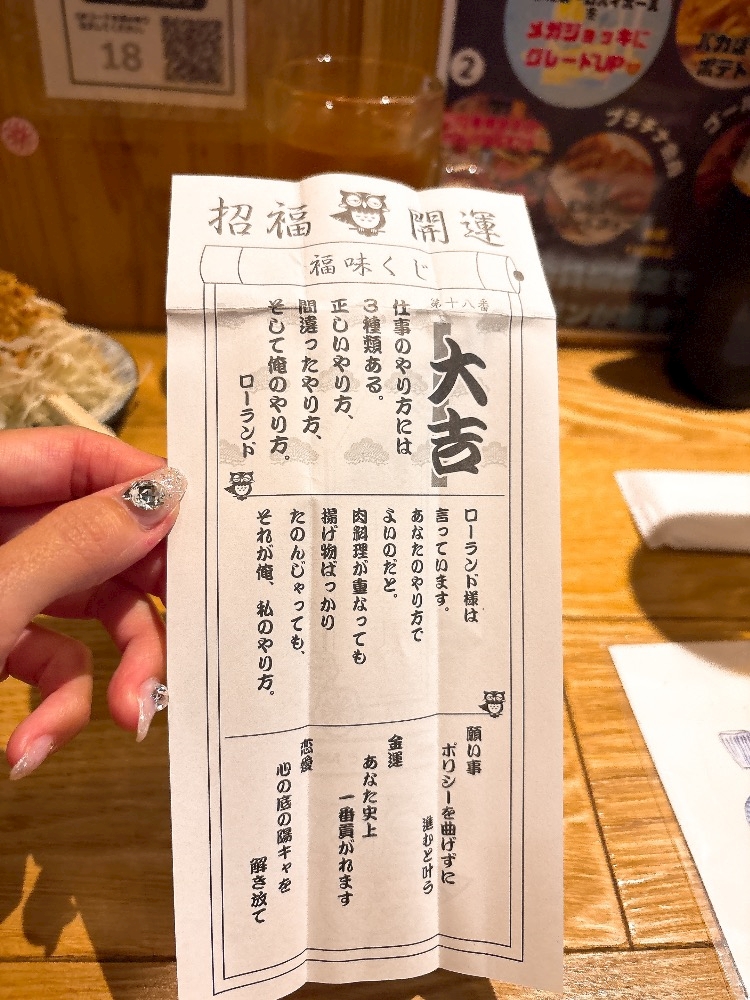 18
②
メガジョッキに
グレードUP
ポテト
プラチナ
招福 開運
福味くじ
第十八番
大吉
仕事のやり方には
3種類ある。
正しいやり方、
間違ったやり方、
そして俺のやり方。
ローランド
ローランド様は
言っています。
あなたのやり方で
よいのだと。
肉料理が重なっても
揚げ物ばっかり
たのんじゃっても、
それが俺、私のやり方。
願い事
ポリシーを曲げずに
進むと叶う
金運
あなた史上
一番貢がれます
恋愛
心の底の陽キャを
解き放て